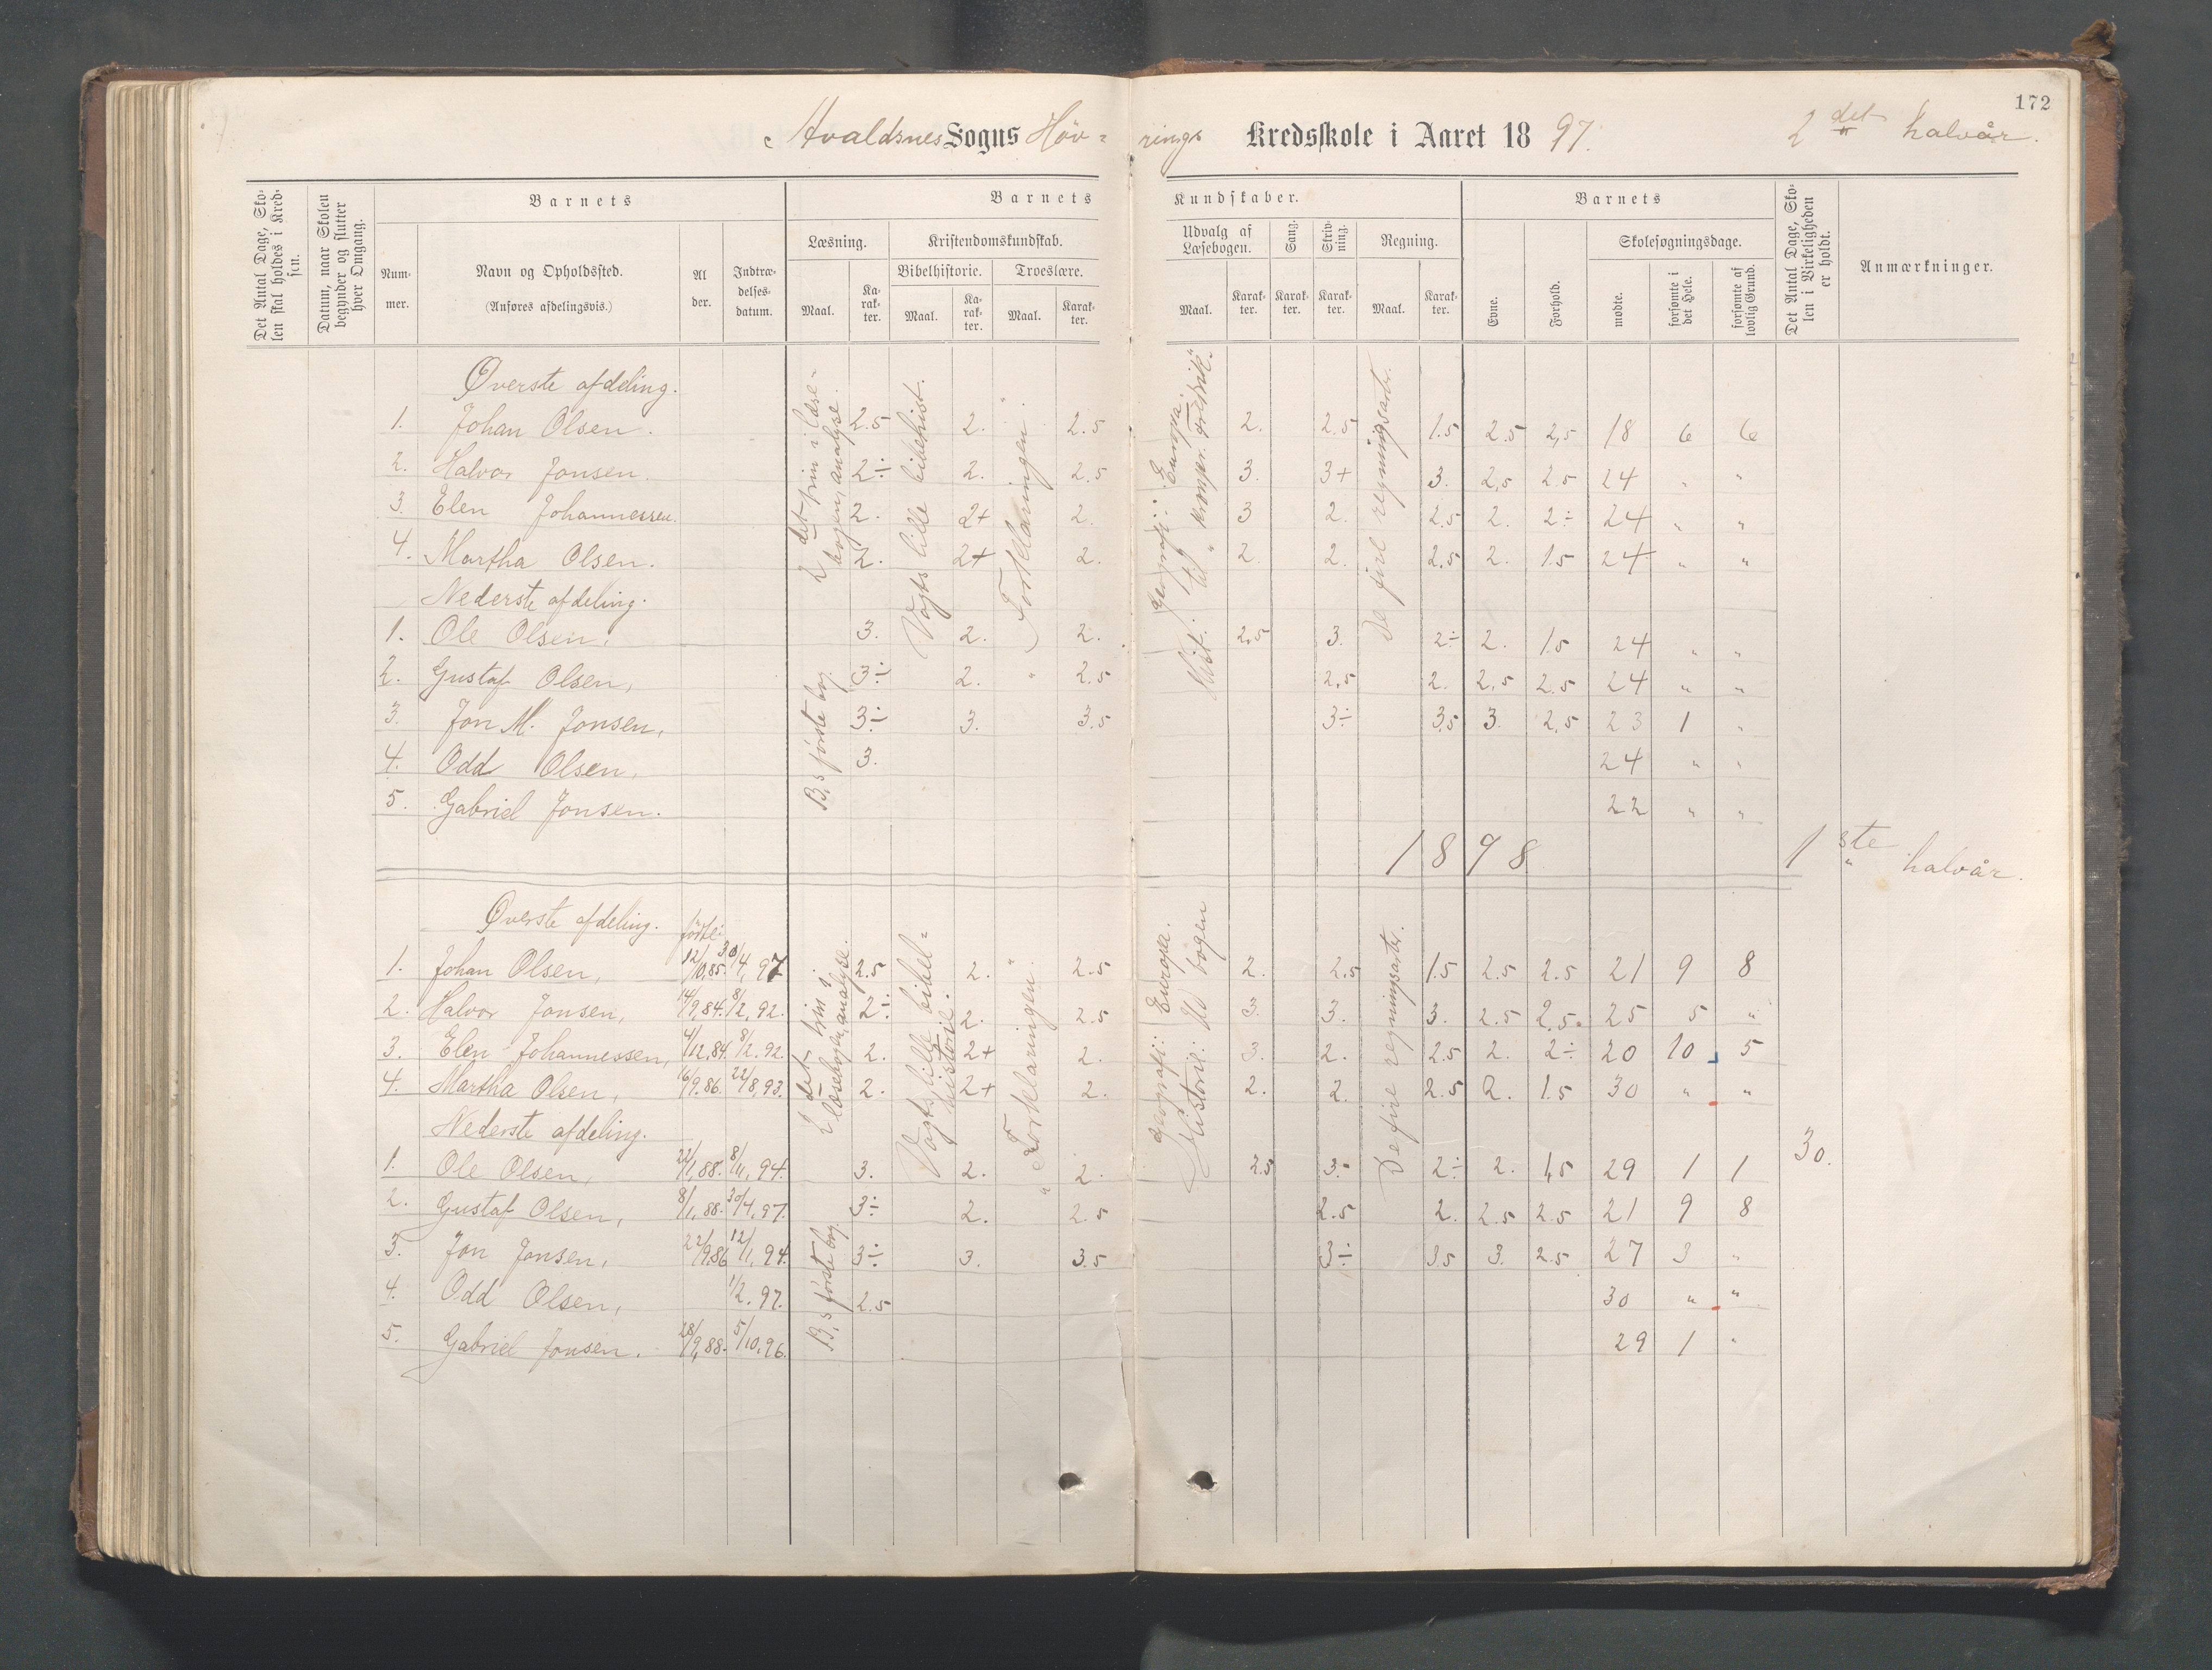 172
Avaldsnes Sogns Høv=rings Kredsskole i Aaret 1897. 2det halvår.
Det Antal Dage, Skolen skal holdes i Kredsen.
Datum, naar Skolen begynder og slutter hver Omgang.
Barnets
Nummer.
Navn og Opholdssted.
(Anføres afdelingsvis.)
Alder.
Indtrædelsesdatum.
Barnets Kundskaber.
Læsning.
Maal.
Karakter.
Kristendomskundskab.
Bibelhistorie.
Maal.
Karakter.
Troeslære.
Maal.
Karakter.
Udvalg af Læsebogen.
Maal.
Karakter.
Sang.
Karakter.
Skrivning.
Karakter.
Regning.
Maal.
Karakter.
Barnets
Evne.
Forhold.
Skolesøgningsdage.
mødte.
forsømte i det Hele.
forsømte af lovlig Grund.
Det Antal Dage, Skolen i Virkeligheden er holdt.
Anmærkninger.
Øverste afdeling.
1. Johan Olsen. 2.5 2. 2.5 2. 2.5 1.5 2.5 2,5 18 6 6
2. Halvor Jonsen. 2÷ 2. 2.5 3. 3+ 3. 2,5 2.5 24 " "
3. Elen Johannessen. 2. 2+ 2. 3 2. 2.5 2. 2÷ 24 " "
4. Martha Olsen. 2. 2+ 2. 2. 2. 2.5 2. 1.5 24 " "
2det trin i læsebogen, analyse.
Vogts lille bibelhist.
" Forklaringen "
geografi: Europa.
Hist. til kronpr. Fredrik.
De fire regningsarter.
Nederste afdeling.
1. Ole Olsen, 3. 2. 2. 2.5 3. 2÷ 2. 1.5 24 " "
2. Gustaf Olsen, 3÷ 2. 2.5 2,5 2. 2,5 2.5 24 " "
3. Jon M. Jonsen, 3÷ 3. 3.5 3÷ 3.5 3. 2,5 23 1 "
4. Odd Olsen, 3. 24 " "
5. Gabriel Jonsen. 22 " "
B,s første bog.
1898 1ste halvår.
Øverste afdeling. født:
1. Johan Olsen, 12/10,85. 30/4, 97 2.5 2. 2.5 2. 2.5 1.5 2.5 2.5 21 9 8
2. Halvor Jonsen, 14/9,84. 8/2, 92. 2÷ 2. 2.5 3. 3. 3. 2.5 2.5. 25 5 "
3. Elen Johannessen, 4/12,84. 8/2. 92. 2. 2+ 2. 3. 2. 2.5 2. 2÷ 20 10 5
4. Martha Olsen, 16/9.86. 22/8,93. 2. 2+ 2. 2. 2. 2.5 2. 1.5 30 " "
2det trin i læsebogen, analyse.
Vogts lille bibelhistorie.
" Forklaringen "
geografi: Europa.
Historie: Ud bogen
De fire regningsarter.
Nederste afdeling.
1. Ole Olsen, 22/1,88. 8/11, 94. 3. 2. 2. 2.5 3. 2÷ 2. 1,5 29 1 1 30.
2. Gustaf Olsen, 8/1,88. 30/4,97. 3÷ 2. 2.5 2.5 2. 2.5 2.5 21 9 8
3. Jon Jonsen, 22/9.86 12/1, 94. 3÷ 3. 3.5 3÷ 3.5 3. 2.5 27 3 "
4. Odd Olsen, 1/2. 97. 2.5 30 " "
5. Gabriel Jonsen. 28/9,88. 5/10.96. 29 1 "
B,s første bog.